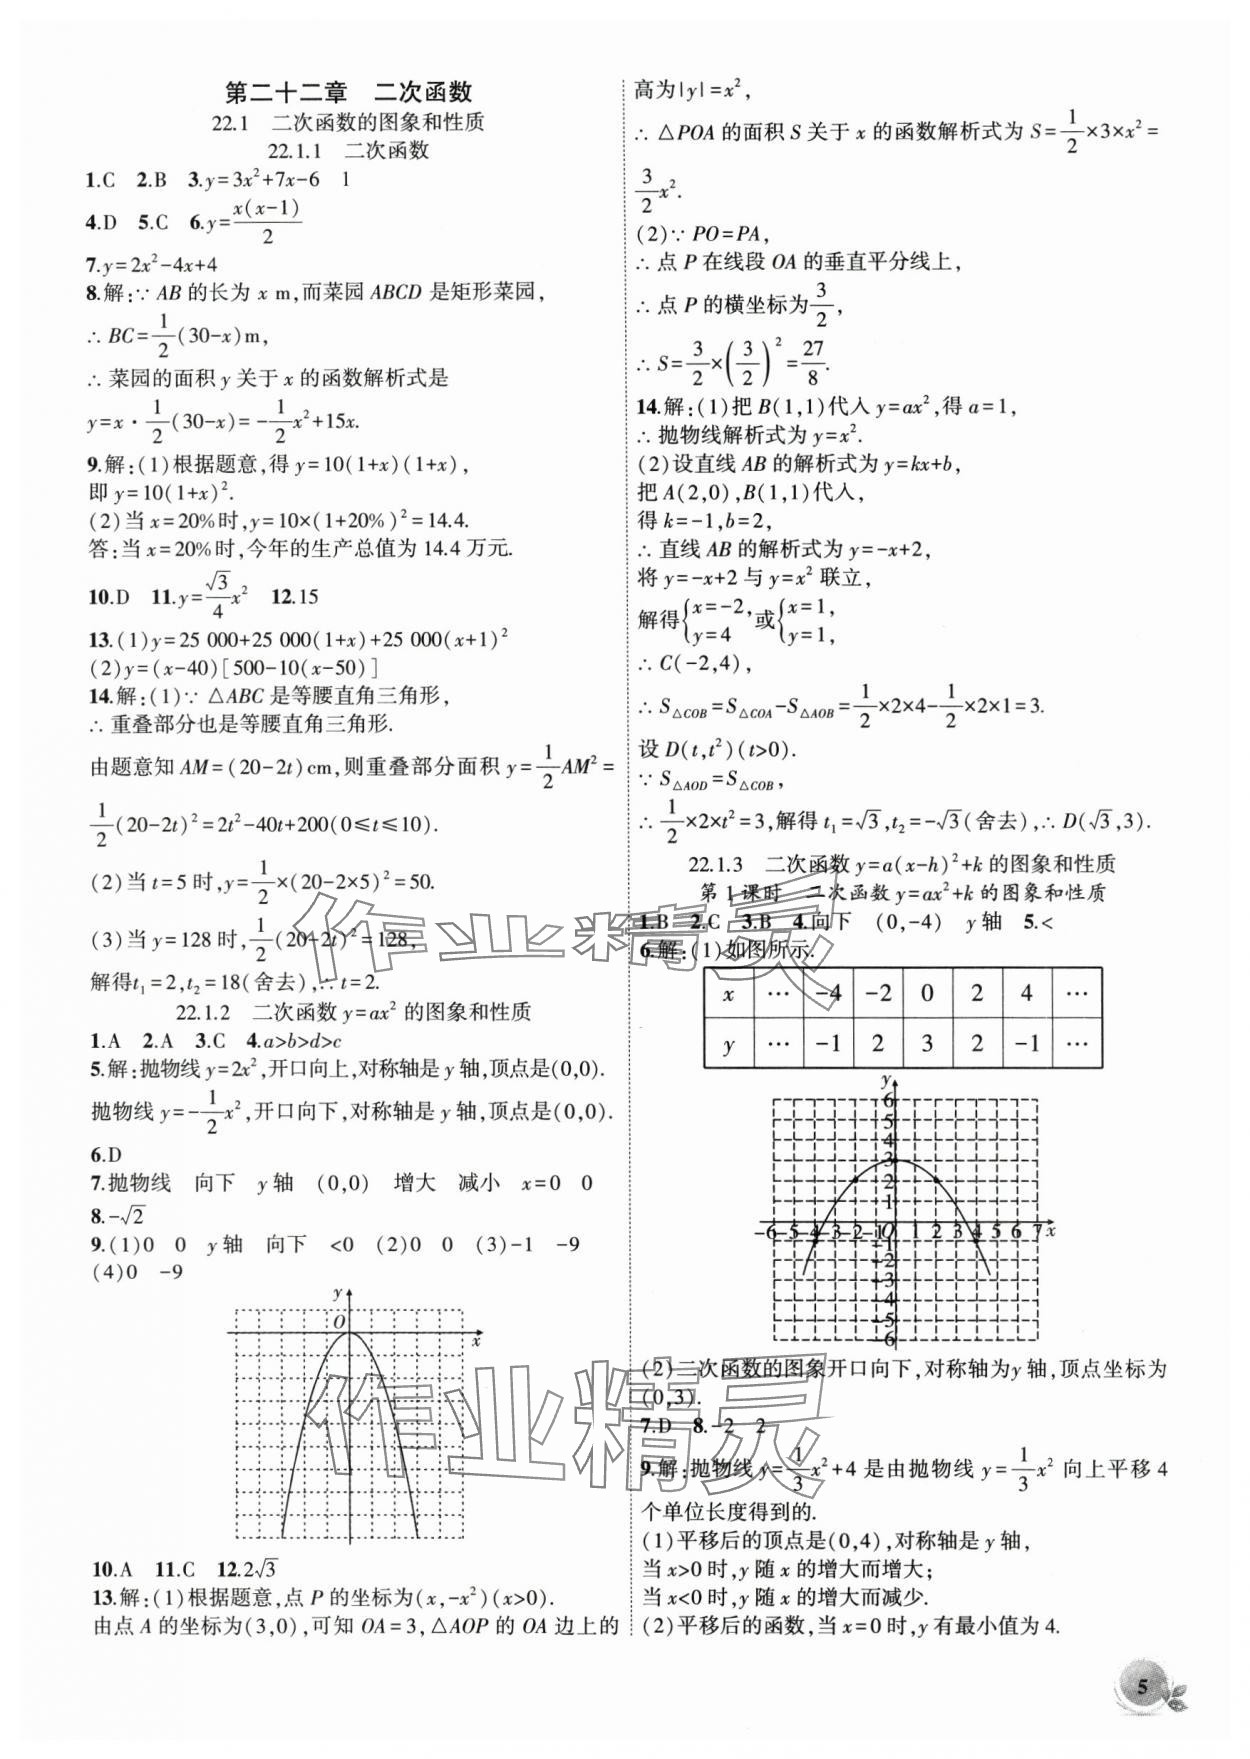 第二十二章　二次函数
22.1　二次函数的图象和性质
22.1.1　二次函数
1.C　2.B　3.y=3x²+7x-6　1
4.D　5.C　6.y=x(x-1)/2
7.y=2x²-4x+4
8.解:∵ AB 的长为 x m,而菜园 ABCD 是矩形菜园,
∴ BC=1/2(30-x)m,
∴ 菜园的面积 y 关于 x 的函数解析式是
y=x·1/2(30-x)=-1/2x²+15x.
9.解:(1)根据题意,得 y=10(1+x)(1+x),
即 y=10(1+x)².
(2)当 x=20%时,y=10×(1+20%)²=14.4.
答:当 x=20%时,今年的生产总值为 14.4 万元.
10.D　11.y=√3/4x²　12.15
13.(1)y=25 000+25 000(1+x)+25 000(x+1)²
(2)y=(x-40)[500-10(x-50)]
14.解:(1)∵ △ABC 是等腰直角三角形,
∴ 重叠部分也是等腰直角三角形.
由题意知 AM=(20-2t)cm,则重叠部分面积 y=1/2AM²=
1/2(20-2t)²=2t²-40t+200(0≤t≤10).
(2)当 t=5 时,y=1/2×(20-2×5)²=50.
(3)当 y=128 时,1/2(20-2t)²=128,
解得t₁=2,t₂=18(舍去),∴ t=2.
22.1.2　二次函数 y=ax² 的图象和性质
1.A　2.A　3.C　4.a>b>d>c
5.解:抛物线 y=2x²,开口向上,对称轴是 y 轴,顶点是(0,0).
抛物线 y=-1/2x²,开口向下,对称轴是 y 轴,顶点是(0,0).
6.D
7.抛物线　向下　y 轴　(0,0)　增大　减小　x=0　0
8.-√2
9.(1)0　0　y 轴　向下　<0　(2)0　0　(3)-1　-9
(4)0　-9
y
O
x
10.A　11.C　12.2√3
13.解:(1)根据题意,点 P 的坐标为(x,-x²)(x>0).
由点 A 的坐标为(3,0),可知 OA=3,△AOP 的 OA 边上的
高为|y|=x²,
∴ △POA 的面积 S 关于 x 的函数解析式为 S=1/2×3×x²=
3/2x².
(2)∵ PO=PA,
∴ 点 P 在线段 OA 的垂直平分线上,
∴ 点 P 的横坐标为3/2,
∴ S=3/2×(3/2)²=27/8.
14.解:(1)把 B(1,1)代入 y=ax²,得 a=1,
∴ 抛物线解析式为 y=x².
(2)设直线 AB 的解析式为 y=kx+b,
把 A(2,0),B(1,1)代入,
得 k=-1,b=2,
∴ 直线 AB 的解析式为 y=-x+2,
将 y=-x+2 与 y=x² 联立,
解得{x=-2, y=4 或{x=1, y=1,
∴ C(-2,4),
∴ S△COB=S△COA-S△AOB=1/2×2×4-1/2×2×1=3.
设 D(t,t²)(t>0).
∵ S△AOD=S△COB,
∴ 1/2×2×t²=3,解得 t₁=√3,t₂=-√3(舍去),∴ D(√3,3).
22.1.3　二次函数 y=a(x-h)²+k 的图象和性质
第 1 课时　二次函数 y=ax²+k 的图象和性质
1.B　2.C　3.B　4.向下　(0,-4)　y 轴　5.<
6.解:(1)如图所示.
x　…　-4　-2　0　2　4　…
y　…　-1　2　3　2　-1　…
y
6
5
4
3
2
1
-6 -5 -4 -3 -2 -1 O 1 2 3 4 5 6 7 x
-1
-2
-3
-4
-5
-6
(2)二次函数的图象开口向下,对称轴为y 轴,顶点坐标为
(0,3).
7.D　8.-2　2
9.解:抛物线 y=1/3x²+4 是由抛物线 y=1/3x² 向上平移 4
个单位长度得到的.
(1)平移后的顶点是(0,4),对称轴是 y 轴,
当 x>0 时,y 随 x 的增大而增大;
当 x<0 时,y 随 x 的增大而减少.
(2)平移后的函数,当 x=0 时,y 有最小值为 4.
作业精灵
作业精灵
5